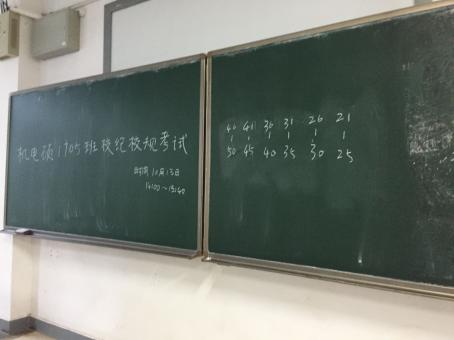 机电硕1705班校纪校规考试
时间 10月13日
14:00~15:40
46 41 36 31 26 21
50 45 40 35 30 25